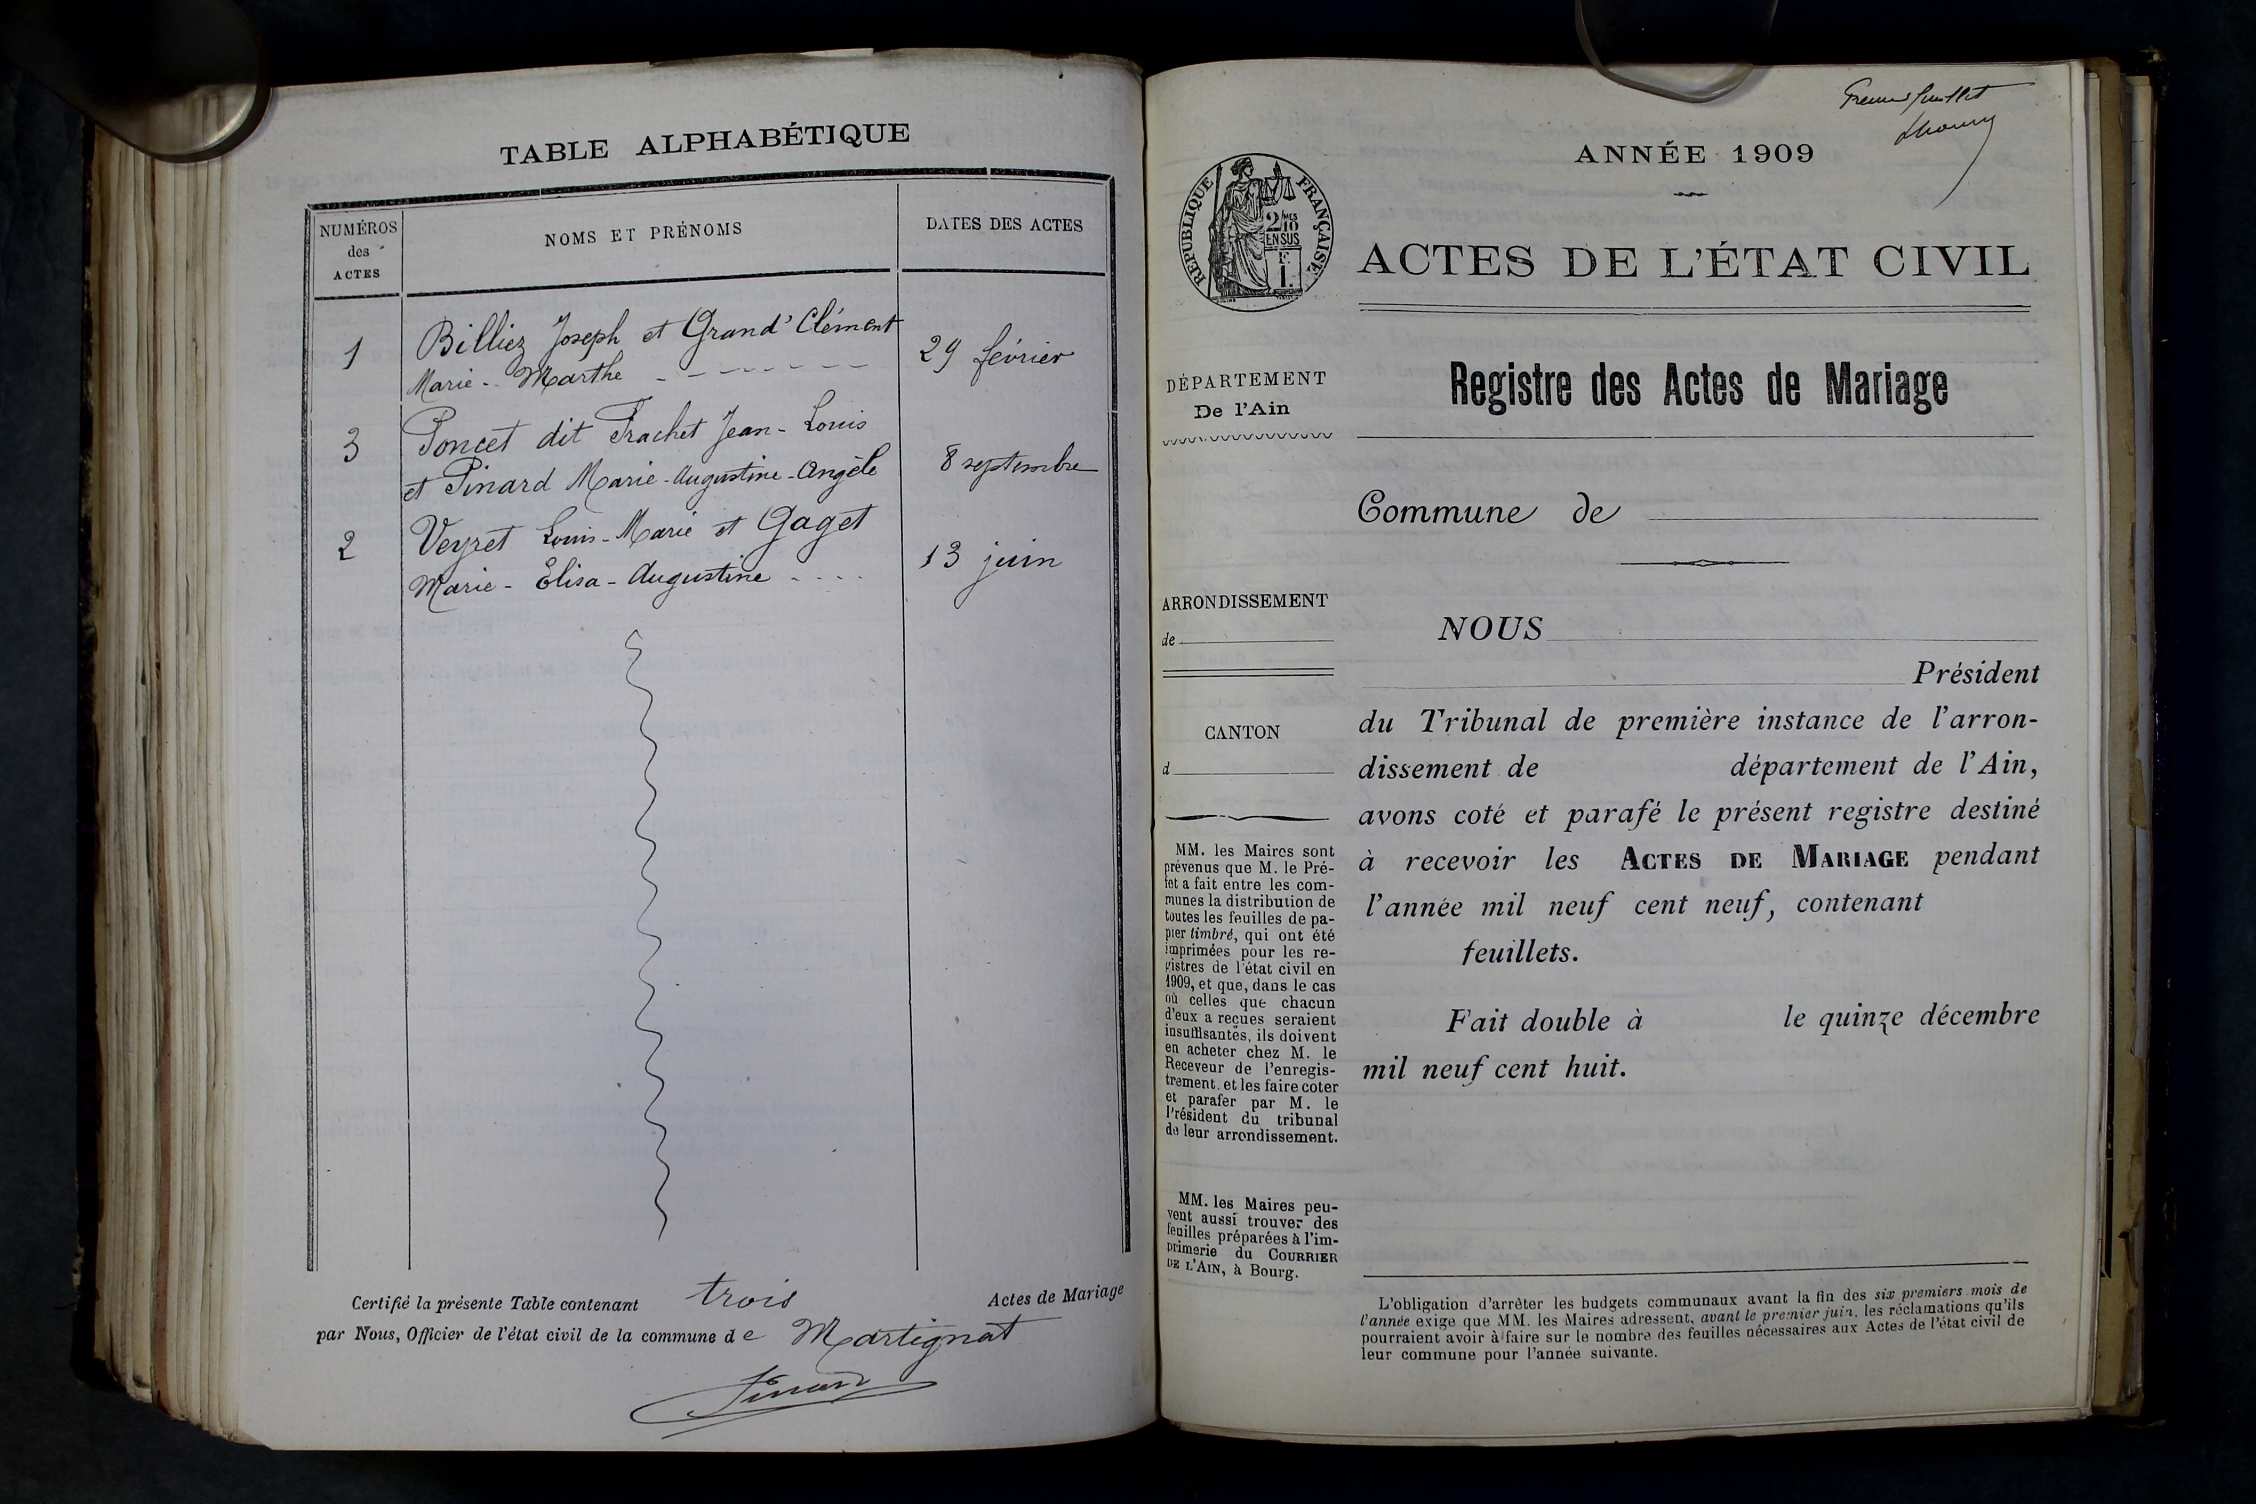 TABLE ALPHABÉTIQUE
NUMÉROS
des
ACTES
NOMS ET PRÉNOMS
DATES DES ACTES
1 Billiez Joseph et Grand'Clément
Marie - Marthe
29 février
3 Poncet dit Trachet Jean-Louis
et Pinard Marie-Augustine-Angèle
8 septembre
2 Veyret Louis-Marie et Gaget
Marie-Elisa-Augustine
13 juin
Certifié la présente Table contenant trois Actes de Mariage
par Nous, Officier de l'état civil de la commune de Martignat
Pinard
Premier feuillet
ANNÉE 1909
RÉPUBLIQUE FRANÇAISE
2/10 MES
EN SUS
F.
1.
ACTES DE L'ÉTAT CIVIL
DÉPARTEMENT
De l'Ain
Registre des Actes de Mariage
Commune de
ARRONDISSEMENT
de
CANTON
d
MM. les Maires sont
prévenus que M. le Pré-
fet a fait entre les com-
munes la distribution de
toutes les feuilles de pa-
pier timbré, qui ont été
imprimées pour les re-
gistres de l'état civil en
1909, et que, dans le cas
où celles que chacun
d'eux a reçues seraient
insuffisantes, ils doivent
en acheter chez M. le
Receveur de l'enregis-
trement. et les faire coter
et parafer par M. le
Président du tribunal
de leur arrondissement.
MM. les Maires peu-
vent aussi trouver des
feuilles préparées à l'im-
primerie du COURRIER
DE L'AIN, à Bourg.
NOUS
Président
du Tribunal de première instance de l'arron-
dissement de département de l'Ain,
avons coté et parafé le présent registre destiné
à recevoir les ACTES DE MARIAGE pendant
l'année mil neuf cent neuf, contenant
feuillets.
Fait double à le quinze décembre
mil neuf cent huit.
L'obligation d'arrêter les budgets communaux avant la fin des six premiers mois de
l'année exige que MM. les Maires adressent, avant le premier juin, les réclamations qu'ils
pourraient avoir à faire sur le nombre des feuilles nécessaires aux Actes de l'état civil de
leur commune pour l'année suivante.